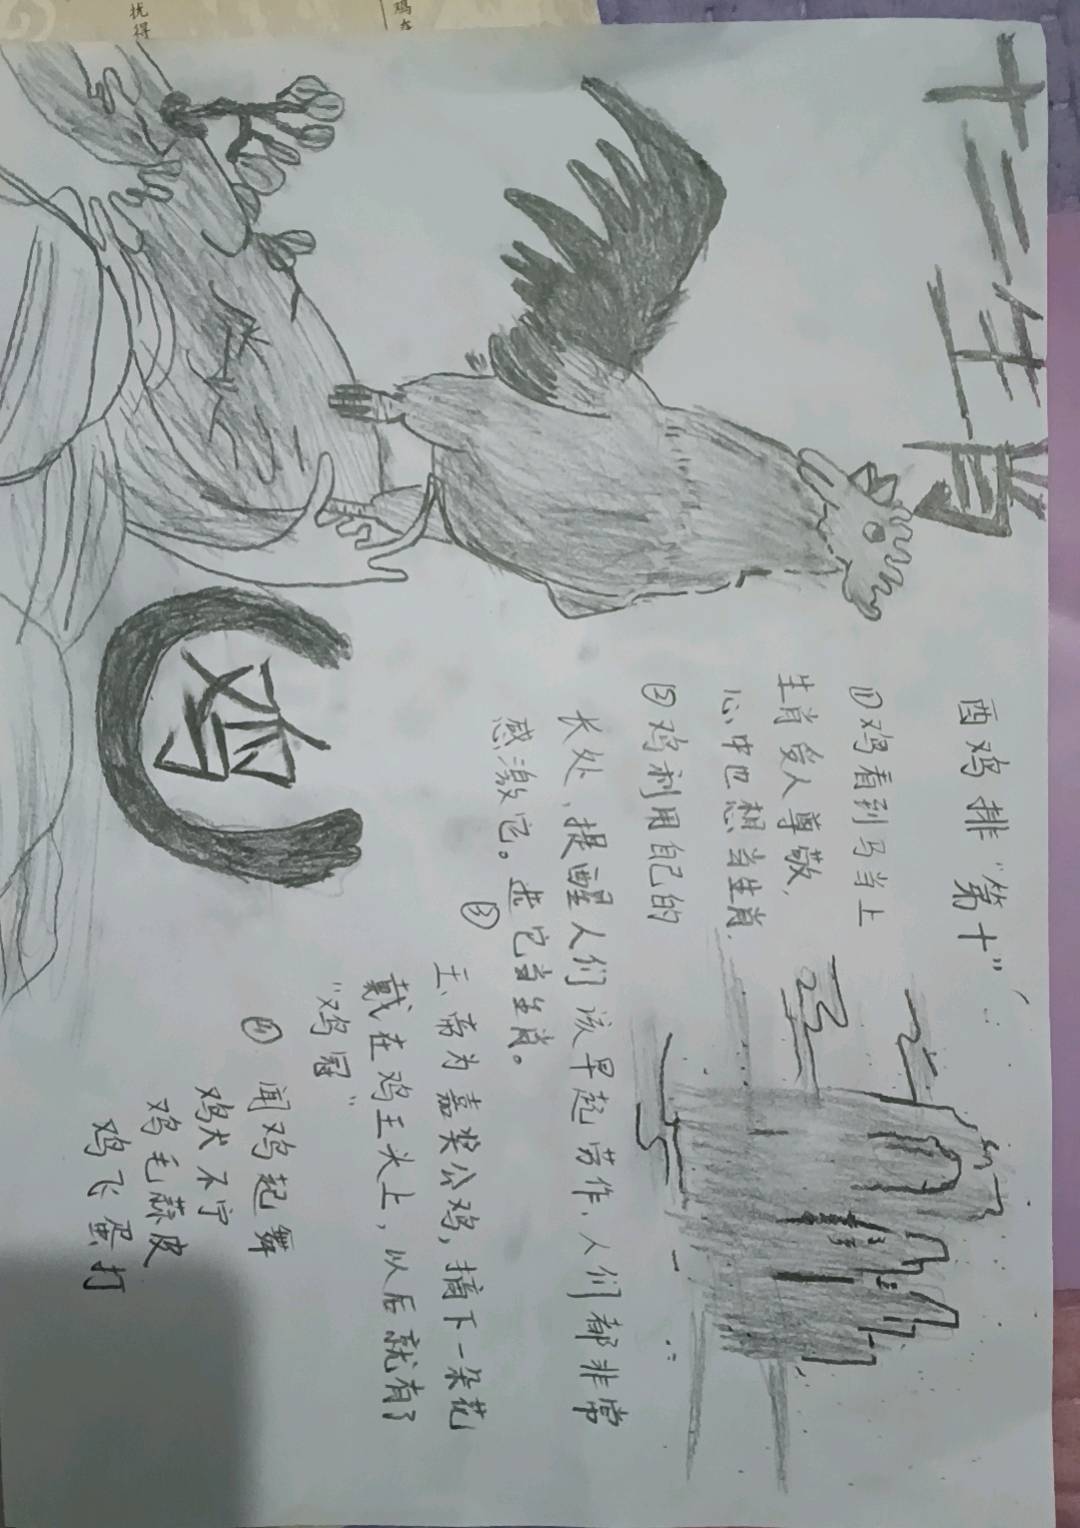 十二生肖
酉鸡排“第十”
①鸡看到马当上
生肖受人尊敬,
心中也想当生肖.
②鸡利用自己的
长处,提醒人们该早起劳作,人们都非常
感激它。让它当生肖。
③
玉帝为嘉奖公鸡,摘下一朵花
戴在鸡王头上,以后就有了
“鸡冠”
④闻鸡起舞
鸡犬不宁
鸡毛蒜皮
鸡飞蛋打
鸡
扰得
鸡